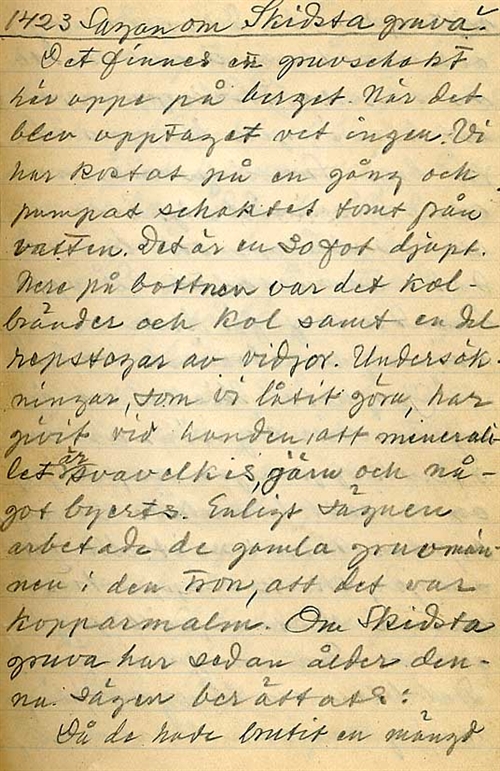 1423 Sagan om Skidsta gruva.
Det finnes en gruvschakt
här oppe på berget. När det
blev upptaget vet ingen. Vi
har kostat på en gång och
pumpat schaktet tomt från
vatten. Det är en 30 fot djupt.
Nere på bottnen var det kol-
bränder och kol samt en del
repstagar av vidjor. Undersök-
ningar, som vi låtit göra, har
givit vid handen, att minerali-
let är svavelkis, järn och nå-
got
Enligt sägnen
arbetade de gamla gruvmän-
nen i den tron, att det var
kopparmalm. Om Skidsta
gruva har sedan ålder den-
na sägen berättats:
Då de hade brutit en mängd